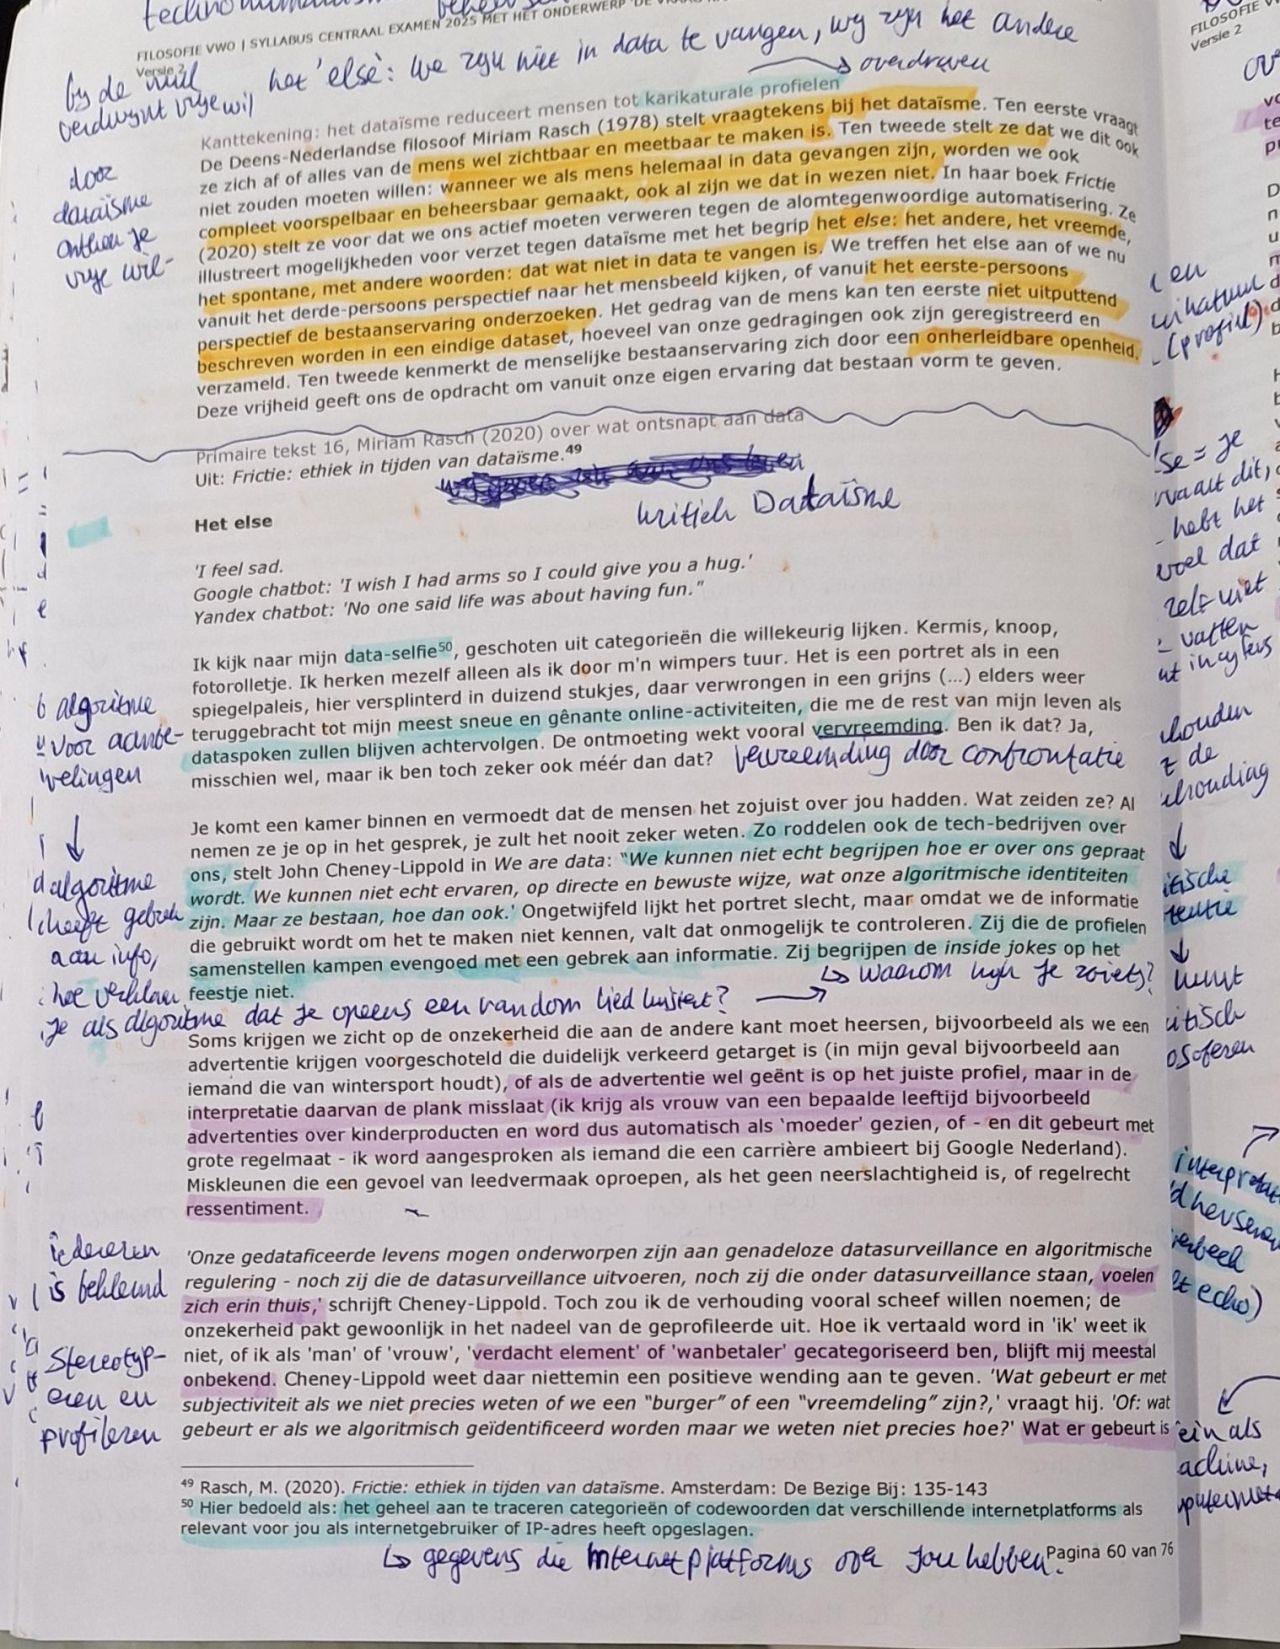 FILOSOFIE VWO | SYLLABUS CENTRAAL EXAMEN 2025 MET HET ONDERWERP
Versie 2
het 'else': we zijn niet in data te vangen, wij zijn het andere
bij de
verdwijnt vrije wil
overdreven
Kanttekening: het dataïsme reduceert mensen tot karikaturale profielen
De Deens-Nederlandse filosoof Miriam Rasch (1978) stelt vraagtekens bij het dataïsme. Ten eerste vraagt
ze zich af of alles van de mens wel zichtbaar en meetbaar te maken is. Ten tweede stelt ze dat we dit ook
niet zouden moeten willen: wanneer we als mens helemaal in data gevangen zijn, worden we ook
compleet voorspelbaar en beheersbaar gemaakt, ook al zijn we dat in wezen niet. In haar boek Frictie
(2020) stelt ze voor dat we ons actief moeten verweren tegen de alomtegenwoordige automatisering. Ze
illustreert mogelijkheden voor verzet tegen dataïsme met het begrip het else: het andere, het vreemde,
het spontane, met andere woorden: dat wat niet in data te vangen is. We treffen het else aan of we nu
vanuit het derde-persoons perspectief naar het mensbeeld kijken, of vanuit het eerste-persoons
perspectief de bestaanservaring onderzoeken. Het gedrag van de mens kan ten eerste niet uitputtend
beschreven worden in een eindige dataset, hoeveel van onze gedragingen ook zijn geregistreerd en
verzameld. Ten tweede kenmerkt de menselijke bestaanservaring zich door een onherleidbare openheid.
Deze vrijheid geeft ons de opdracht om vanuit onze eigen ervaring dat bestaan vorm te geven.
door
dataïsme
onthou je
vrije wil-
Primaire tekst 16, Miriam Rasch (2020) over wat ontsnapt aan data
Uit: Frictie: ethiek in tijden van dataïsme.49
kritiek Dataïsme
Het else
'I feel sad.
Google chatbot: 'I wish I had arms so I could give you a hug.'
Yandex chatbot: 'No one said life was about having fun."
Ik kijk naar mijn data-selfie50, geschoten uit categorieën die willekeurig lijken. Kermis, knoop,
fotorolletje. Ik herken mezelf alleen als ik door m'n wimpers tuur. Het is een portret als in een
spiegelpaleis, hier versplinterd in duizend stukjes, daar verwrongen in een grijns (...) elders weer
teruggebracht tot mijn meest sneue en gênante online-activiteiten, die me de rest van mijn leven als
dataspoken zullen blijven achtervolgen. De ontmoeting wekt vooral vervreemding. Ben ik dat? Ja,
misschien wel, maar ik ben toch zeker ook méér dan dat?
vervreemding door confrontatie
algoritme
voor aanbe-
velingen
Je komt een kamer binnen en vermoedt dat de mensen het zojuist over jou hadden. Wat zeiden ze? Al
nemen ze je op in het gesprek, je zult het nooit zeker weten. Zo roddelen ook de tech-bedrijven over
ons, stelt John Cheney-Lippold in We are data: "We kunnen niet echt begrijpen hoe er over ons gepraat
wordt. We kunnen niet echt ervaren, op directe en bewuste wijze, wat onze algoritmische identiteiten
zijn. Maar ze bestaan, hoe dan ook.' Ongetwijfeld lijkt het portret slecht, maar omdat we de informatie
die gebruikt wordt om het te maken niet kennen, valt dat onmogelijk te controleren. Zij die de profielen
samenstellen kampen evengoed met een gebrek aan informatie. Zij begrijpen de inside jokes op het
feestje niet.
algoritme
heeft gebrek
aan info,
hoe verklaar
je als algoritme dat je opeens een random lied luistert?
waarom kijk je zoiets?
Soms krijgen we zicht op de onzekerheid die aan de andere kant moet heersen, bijvoorbeeld als we een
advertentie krijgen voorgeschoteld die duidelijk verkeerd getarget is (in mijn geval bijvoorbeeld aan
iemand die van wintersport houdt), of als de advertentie wel geënt is op het juiste profiel, maar in de
interpretatie daarvan de plank misslaat (ik krijg als vrouw van een bepaalde leeftijd bijvoorbeeld
advertenties over kinderproducten en word dus automatisch als 'moeder' gezien, of - en dit gebeurt met
grote regelmaat - ik word aangesproken als iemand die een carrière ambieert bij Google Nederland).
Miskleunen die een gevoel van leedvermaak oproepen, als het geen neerslachtigheid is, of regelrecht
ressentiment.
'Onze gedataficeerde levens mogen onderworpen zijn aan genadeloze datasurveillance en algoritmische
regulering - noch zij die de datasurveillance uitvoeren, noch zij die onder datasurveillance staan, voelen
zich erin thuis,' schrijft Cheney-Lippold. Toch zou ik de verhouding vooral scheef willen noemen; de
onzekerheid pakt gewoonlijk in het nadeel van de geprofileerde uit. Hoe ik vertaald word in 'ik' weet ik
niet, of ik als 'man' of 'vrouw', 'verdacht element' of 'wanbetaler' gecategoriseerd ben, blijft mij meestal
onbekend. Cheney-Lippold weet daar niettemin een positieve wending aan te geven. 'Wat gebeurt er met
subjectiviteit als we niet precies weten of we een "burger" of een "vreemdeling" zijn?,' vraagt hij. 'Of: wat
gebeurt er als we algoritmisch geïdentificeerd worden maar we weten niet precies hoe?' Wat er gebeurt is
iedereen
is beklemd
Stereotyp-
eren en
profileren
49 Rasch, M. (2020). Frictie: ethiek in tijden van dataïsme. Amsterdam: De Bezige Bij: 135-143
50 Hier bedoeld als: het geheel aan te traceren categorieën of codewoorden dat verschillende internetplatforms als
relevant voor jou als internetgebruiker of IP-adres heeft opgeslagen.
gegevens die internetplatforms over jou hebben.
Pagina 60 van 76
FILOSOFIE
Versie 2